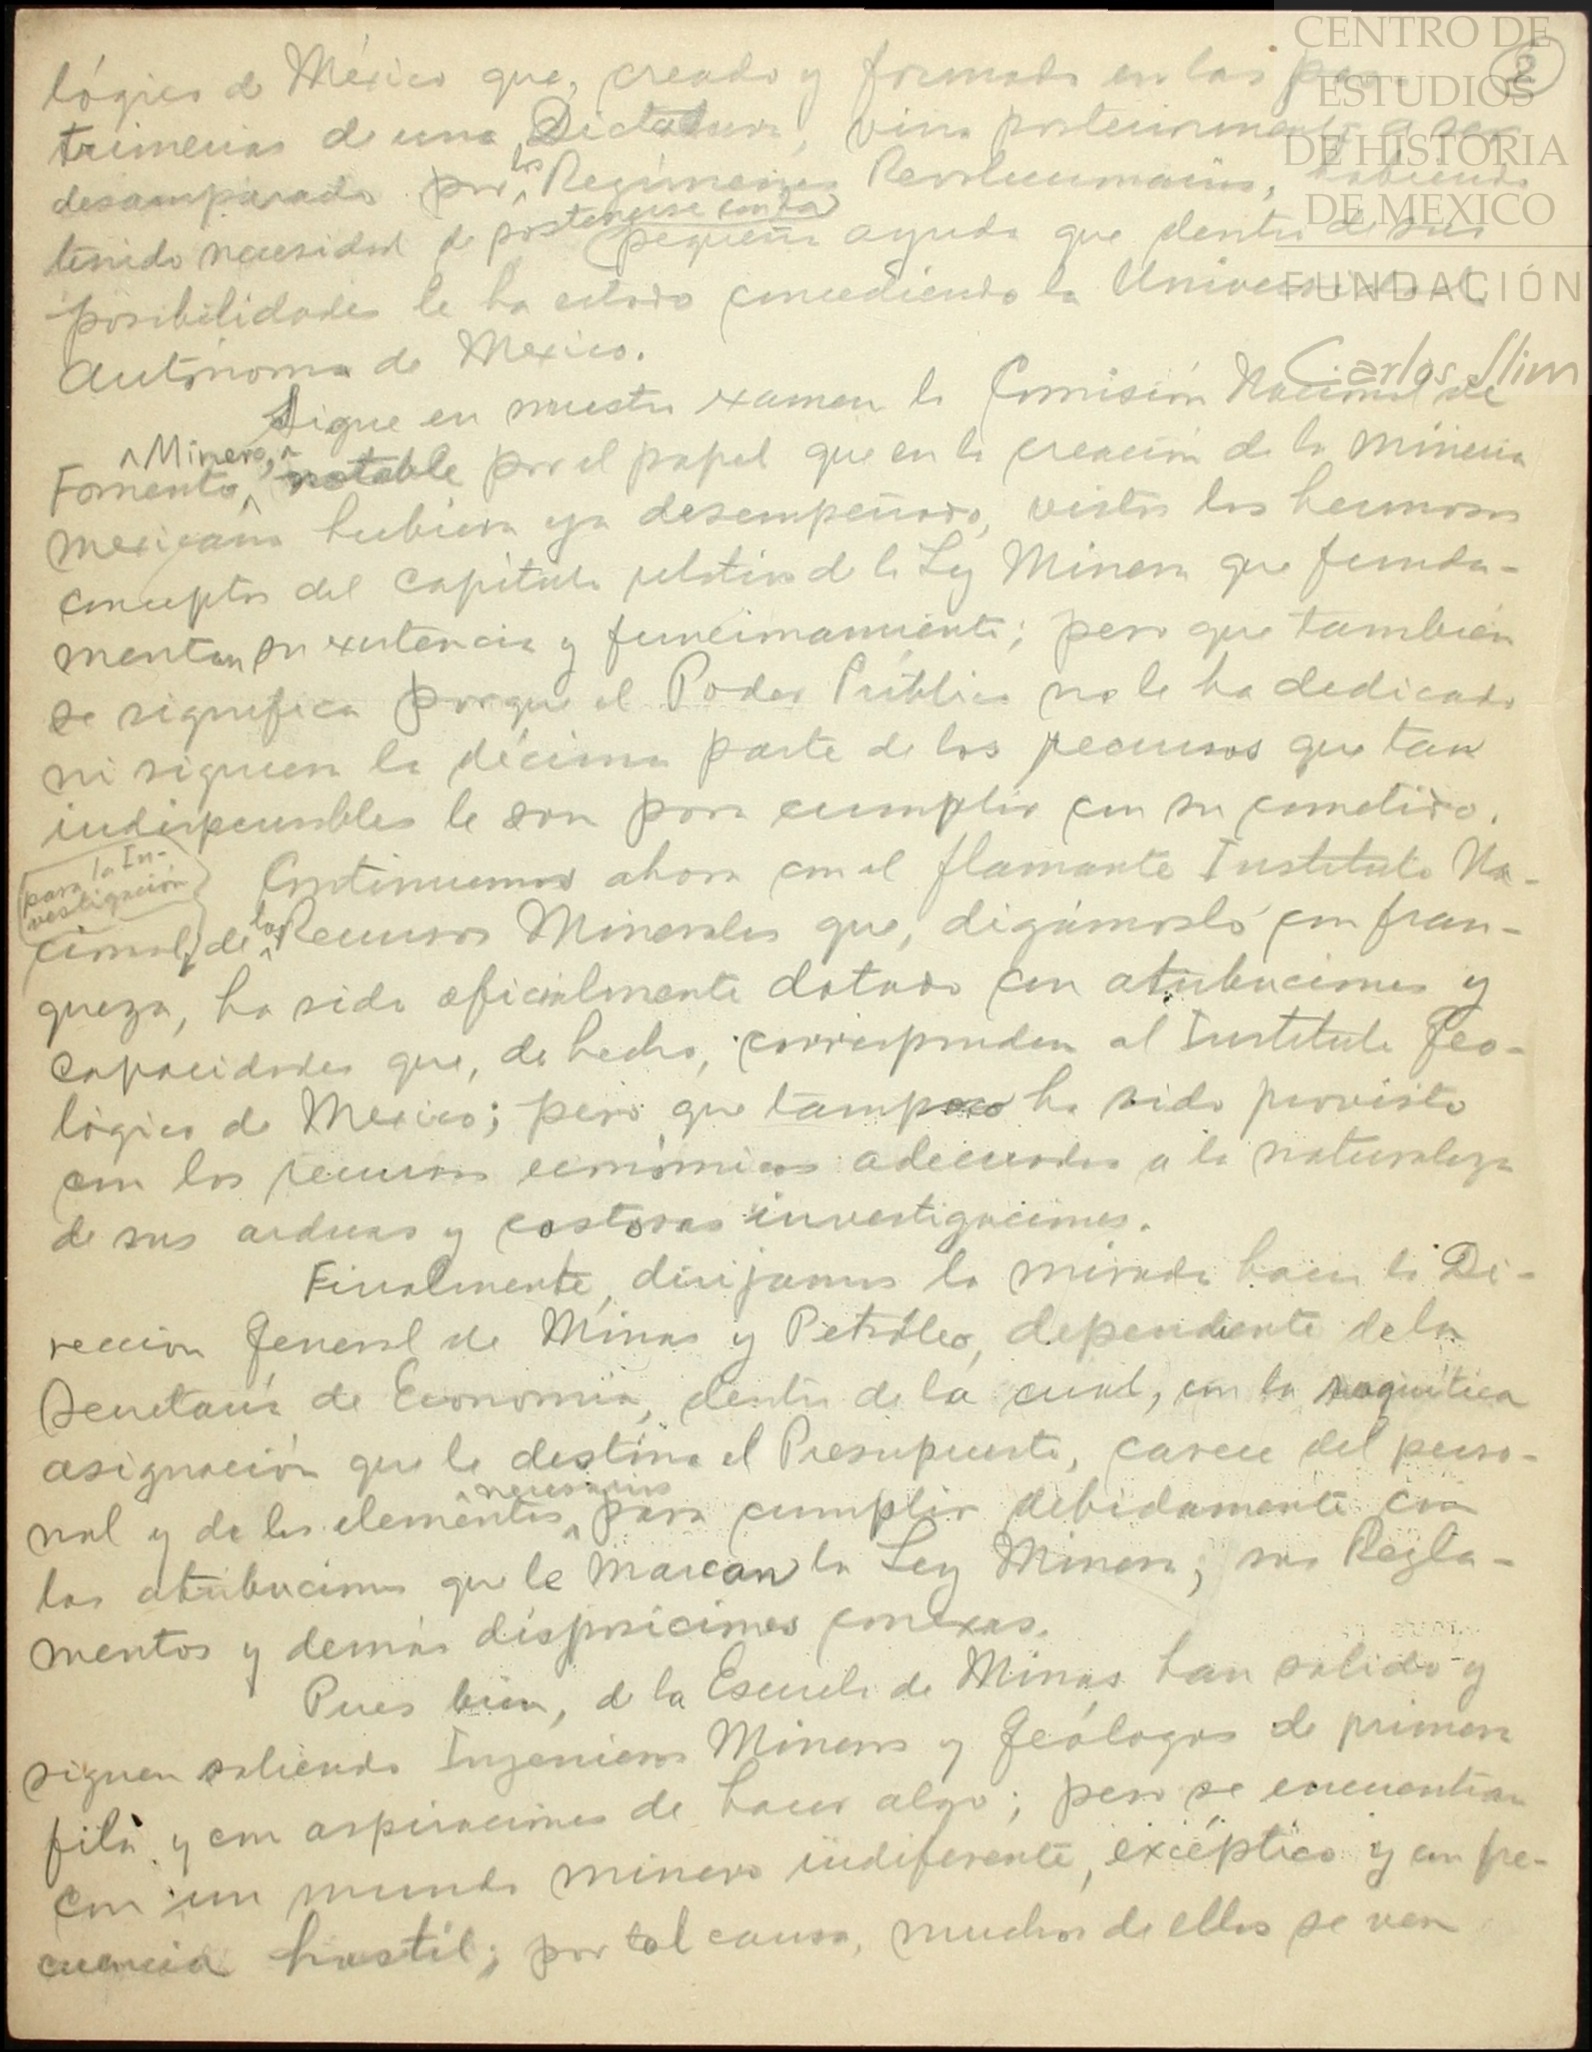 CENTRO DE
ESTUDIOS
DE HISTORIA
DE MEXICO
FUNDACIÓN
Carlos Slim
2
lógico de México que, creado y formado en las pos-
trimerías de una Dictadura, vino posteriormente a ser
desamparado por los Regímenes Revolucionarios, habiendo
tenido necesidad de sostenerse con la pequeña ayuda que dentro de sus
posibilidades le ha estado concediendo la Universidad
Autónoma de Mexico.
Sigue en nuestro examen la Comisión Nacional de
Fomento Minero, notable por el papel que en la creación de la minería
mexicana hubiera ya desempeñado, vistos los hermosos
conceptos del capítulo relativo de la Ley Minera que funda-
mentan su existencia y funcionamiento; pero que también
se significa porque el Poder Público no le ha dedicado
ni siquiera la décima parte de los recursos que tan
indispensables le son para cumplir con su cometido.
Continuemos ahora con el flamante Instituto Na-
cional para la In-
vestigación de los Recursos Minerales que, digámoslo con fran-
queza, ha sido oficialmente dotado con atribuciones y
capacidades que, de hecho, corresponden al Instituto Geo-
lógico de Mexico; pero que tampoco ha sido provisto
con los recursos económicos adecuados a la naturaleza
de sus arduas y costosas investigaciones.
Finalmente, dirijamos la mirada hacia la Di-
reccion General de Minas y Petróleo, dependiente de la
Secretaría de Economía, dentro de la cual, con la raquítica
asignación que le destina el Presupuesto, carece del perso-
nal y de los elementos necesarios para cumplir debidamente con
las atribuciones que le marcan la Ley Minera, sus Regla-
mentos y demás disposiciones conexas.
Pues bien, de la Escuela de Minas han salido y
siguen saliendo Ingenieros Mineros y Geólogos de primera
fila y con aspiraciones de hacer algo; pero se encuentran
con un mundo minero indiferente, excéptico y con fre-
cuencia hostil; por tal causa, muchos de ellos se ven